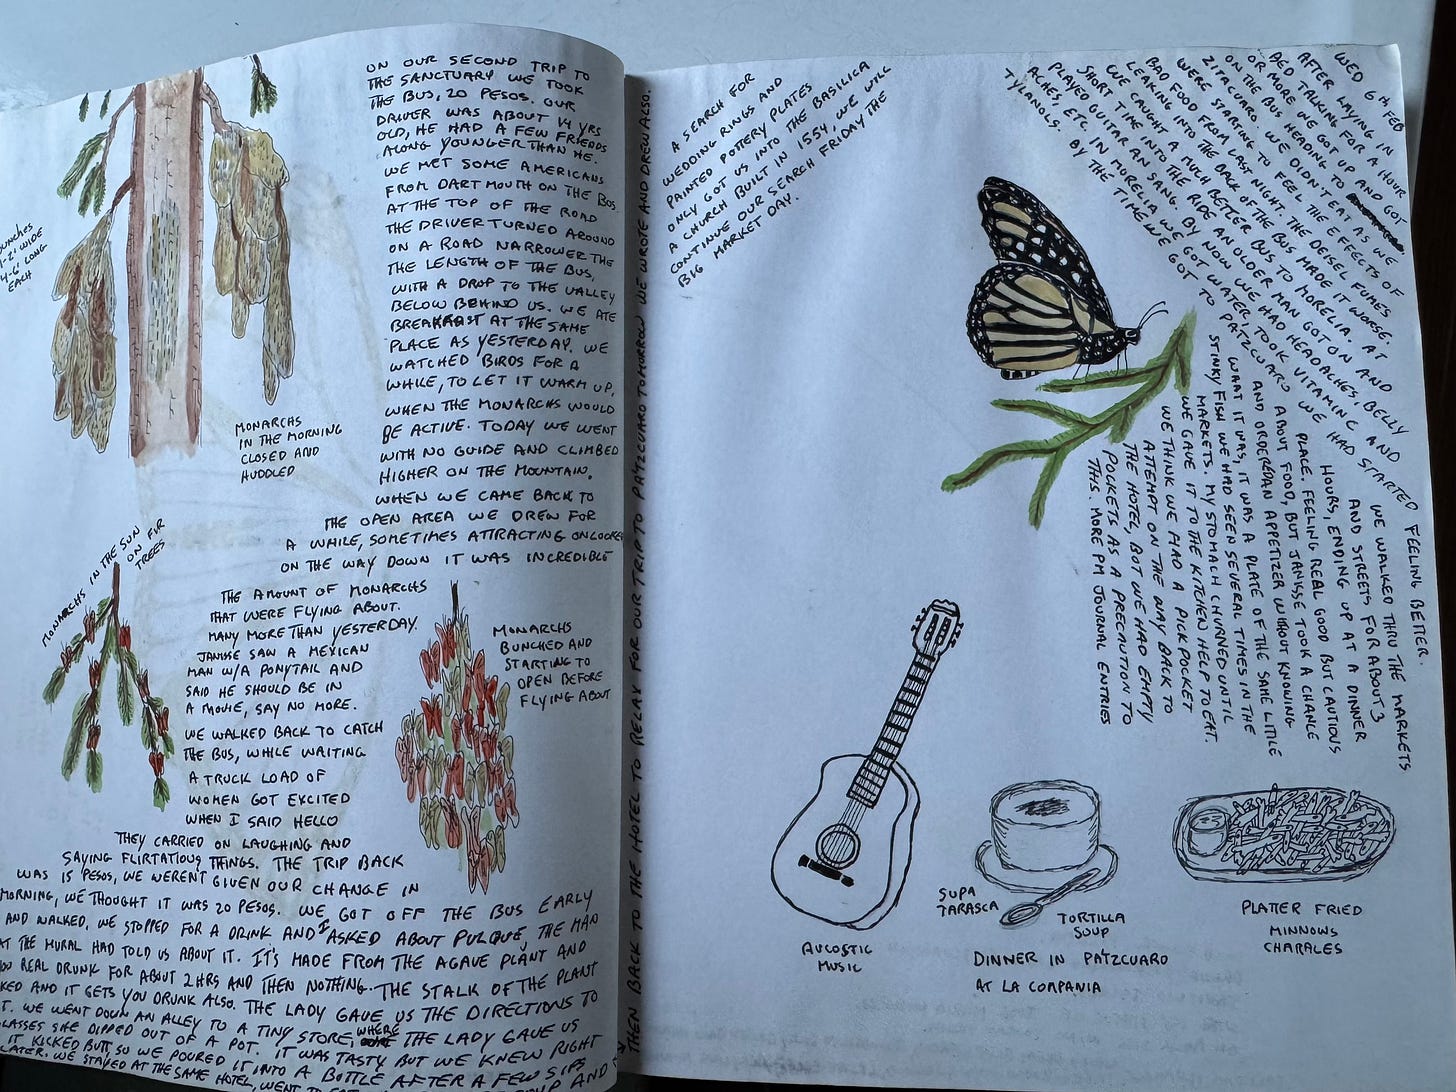 ON OUR SECOND TRIP TO
THE SANCTUARY WE TOOK
THE BUS, 20 PESOS. OUR
DRIVER WAS ABOUT 14 YRS
OLD, HE HAD A FEW FRIENDS
ALONG YOUNGER THAN HE.
WE MET SOME AMERICANS
FROM DARTMOUTH ON THE BUS.
AT THE TOP OF THE ROAD
THE DRIVER TURNED AROUND
ON A ROAD NARROWER THE
THE LENGTH OF THE BUS,
WITH A DROP TO THE VALLEY
BELOW BEHIND US. WE ATE
BREAKFAST AT THE SAME
PLACE AS YESTERDAY. WE
WATCHED BIRDS FOR A
WHILE, TO LET IT WARM UP,
WHEN THE MONARCHS WOULD
BE ACTIVE. TODAY WE WENT
WITH NO GUIDE AND CLIMBED
HIGHER ON THE MOUNTAIN.
WHEN WE CAME BACK TO
THE OPEN AREA WE DREW FOR
A WHILE, SOMETIMES ATTRACTING ONLOOKERS
ON THE WAY DOWN IT WAS INCREDIBLE
THE AMOUNT OF MONARCHS
THAT WERE FLYING ABOUT.
MANY MORE THAN YESTERDAY.
JANISSE SAW A MEXICAN
MAN W/A PONYTAIL AND
SAID HE SHOULD BE IN
A MOVIE, SAY NO MORE.
WE WALKED BACK TO CATCH
THE BUS, WHILE WAITING
A TRUCK LOAD OF
WOMEN GOT EXCITED
WHEN I SAID HELLO
THEY CARRIED ON LAUGHING AND
SAYING FLIRTATIOUS THINGS. THE TRIP BACK
WAS 15 PESOS, WE WEREN'T GIVEN OUR CHANGE IN
MORNING, WE THOUGHT IT WAS 20 PESOS. WE GOT OFF THE BUS EARLY
AND WALKED. WE STOPPED FOR A DRINK AND I ASKED ABOUT PULQUE, THE MAN
AT THE MURAL HAD TOLD US ABOUT IT. IT'S MADE FROM THE AGAVE PLANT AND
REAL DRUNK FOR ABOUT 2 HRS AND THEN NOTHING. THE STALK OF THE PLANT
AND IT GETS YOU DRUNK ALSO. THE LADY GAVE US THE DIRECTIONS TO
WE WENT DOWN AN ALLEY TO A TINY STORE, WHERE THE LADY GAVE US
GLASSES SHE DIPPED OUT OF A POT. IT WAS TASTY BUT WE KNEW RIGHT
IT KICKED BUTT, SO WE POURED IT INTO A BOTTLE AFTER A FEW SIPS
LATER. WE STAYED AT THE SAME HOTEL, WENT TO SOUP AND
BUNCHES
1-2' WIDE
4-6' LONG
EACH
MONARCHS
IN THE MORNING
CLOSED AND
HUDDLED
MONARCHS IN THE SUN
ON FIR
TREES
MONARCHS
BUNCHED AND
STARTING TO
OPEN BEFORE
FLYING ABOUT
THEN BACK TO THE HOTEL TO RELAX FOR OUR TRIP TO PATZCUARO TOMORROW WE WROTE AND DREW ALSO.
WED 6TH FEB
AFTER LAYING IN
BED TALKING FOR A 1HOUR
OR MORE WE GOT UP AND GOT
ON THE BUS HEADING TO
ZITACUARO. WE DIDN'T EAT AS WE
WERE STARTING TO FEEL THE EFFECTS OF
BAD FOOD FROM LAST NIGHT. THE DEISEL FUMES
LEAKING INTO THE BACK OF THE BUS MADE IT WORSE.
WE CAUGHT A MUCH BETTER BUS TO MORELIA. AT
SHORT TIME INTO THE RIDE AN OLDER MAN GOT ON AND
PLAYED GUITAR AN SANG. BY NOW WE HAD HEADACHES, BELLY
ACHES, ETC. IN MORELIA WE GOT WATER TOOK VITAMINC AND
TYLANOLS. BY THE TIME WE GOT TO PATZCUARO WE HAD STARTED FEELING BETTER.
WE WALKED THRU THE MARKETS
AND STREETS FOR ABOUT 3
HOURS, ENDING UP AT A DINNER
PLACE. FEELING REAL GOOD BUT CAUTIOUS
ABOUT FOOD, BUT JANISSE TOOK A CHANCE
AND ORDER AN APPETIZER W/OUT KNOWING
WAAT IT WAS, IT WAS A PLATE OF THE SAME LITTLE
STINKY FISH WE HAD SEEN SEVERAL TIMES IN THE
MARKETS. MY STOMACH CHURNED UNTIL
WE GAVE IT TO THE KITCHEN HELP TO EAT.
WE THINK WE HAD A PICK POCKET
ATEMPT ON THE WAY BACK TO
THE HOTEL, BUT WE HAD EMPTY
POCKETS AS A PRECAUTION TO
THIS. MORE PM JOURNAL ENTRIES
A SEARCH FOR
WEDDING RINGS AND
PAINTED POTTERY PLATES
ONLY GOT US INTO THE BASILICA
A CHURCH BUILT IN 1554, WE WILL
CONTINUE OUR SEARCH FRIDAY THE
BIG MARKET DAY.
AUCOSTIC
MUSIC
SUPA
TARASCA
TORTILLA
SOUP
DINNER IN PATZCUARO
AT LA COMPANIA
PLATTER FRIED
MINNOWS
CHARALES